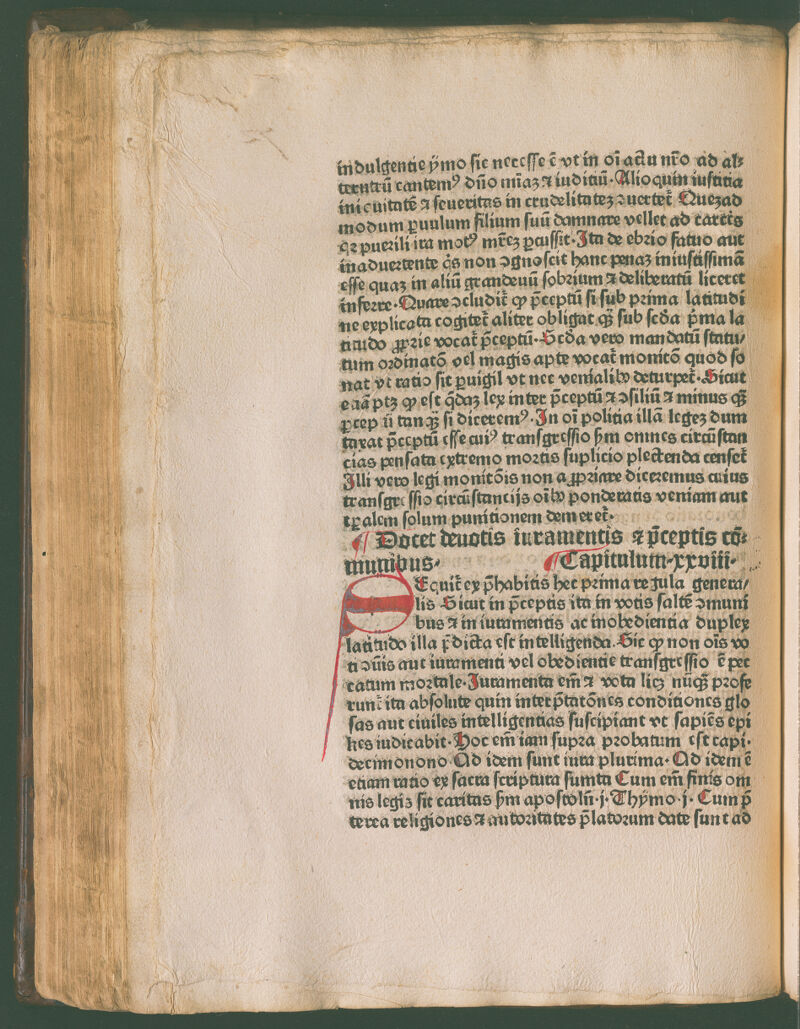 indulgentie ẏmo sic necesse ē vt in oī actu nr̄o ad al⸗
terutrū cantemꝰ dn̄o mīaꝫ ⁊ iuditiū·Alioquin iustitia
iniquitatē ⁊ seueritas in crudelitateꝫ ↄuertet᷑ Queꝫad
modum ꝑuulum filium suū damnare vellet ad carcēs
qꝛ puerili ira motꝰ mr̄eꝫ ꝑcussit·Ita de ebrio fatuo aut
inaduertente q̇s non ↄgnoscit hanc penaꝫ iniustissimā
esse quaꝫ in aliū grandeuū sobrium ⁊ deliberatū liceret
inferre·Quare ↄcludit᷑ ꝙ p̄ceptū si sub prima latitudi
ne explicata cogitet᷑ aliter obligat qꝫ̄ sub scd̄a p̄ma la
titudo ꝓprie vocat᷑ p̄ceptū·Scd̄a vero mandatū statu⸗
tum ordinatō vel magis apte vocat᷑ monitō quod so
nat vt ratio sit ꝑuigil vt nec venialibꝰ deturpet᷑·Sicut
eaā ptꝫ ꝙ est q̄daꝫ lex inter p̄ceptū ⁊ ↄsiliū ⁊ minus qꝫ̄
p̄ceptū tanqꝫ̄ si diceremꝰ·In oī politia illā legeꝫ dum
taxat p̄ceptū esse cuiꝰ transgressio ẜm omnes circūstan
cias pensata extremo mortis suplicio plectenda censet᷑
Illi vero legi monitōis non aꝓpriare diceremus cuius
transgressio circūstancijs oībꝰ ponderatis veniam aut
tꝑalem solum punitionem demeret᷑·
¶ Docet deuotis iuramentis ⁊ p̄ceptis cō⸗
munibus· ¶Capitulum·xxviii·
SEquit᷑ ex p̄habitis hec prima regula genera⸗
lis Sicut in p̄ceptis ita in votis saltē ↄmuni
bus ⁊ in iuramentis ac inobedientia duplex
latitudo illa p̄dicta est intelligenda·Sic ꝙ non oīs vo
ti ↄuīs aut iuramenti vel obedientie transgressio ē pec
catum mortale·Iuramenta em̄ ⁊ vota licꝫ nūqꝫ̄ profe
runt᷑ ita absolute quin interp̄tatōnes conditiones glo
sas aut ciuiles intelligentias suscipiant vt sapiēs epi
kes iudicabit·Hoc em̄ iam supra probatum est capi·
decimonono·Ad idem sunt iura plurima·Ad idem ē
etiam ratio ex sacra scriptura sumta Cum em̄ finis om
nis legis sit caritas ẜm apostolū·j·Thẏmo·j·Cum p̄
terea religiones ⁊ autoritates p̄latorum date sunt ad